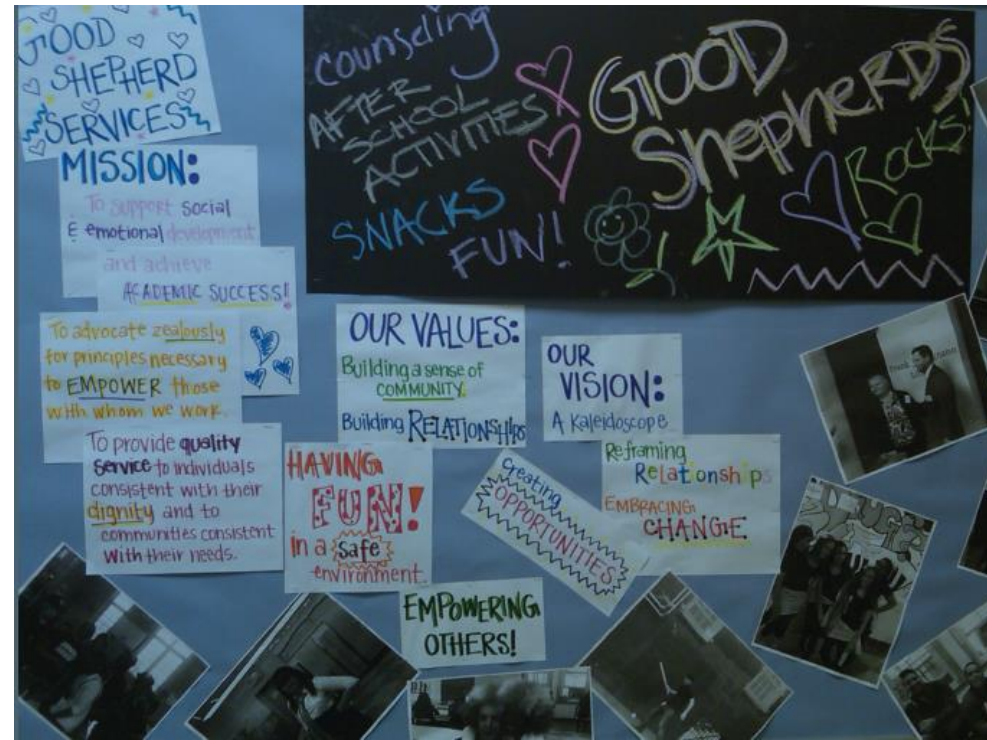 GOOD
SHEPHERD
SERVICES
MISSION:
To support social
& emotional development
and achieve
ACADEMIC SUCCESS!
To advocate zealously
for principles necessary
to EMPOWER those
with whom we work.
To provide quality
service to individuals
consistent with their
dignity and to
communities consistent
with their needs.
Counseling
AFTER
SCHOOL
ACTIVITIES
SNACKS
FUN!
GOOD
SHEPHERDS
ROCKS!
OUR VALUES:
Building a sense of
COMMUNITY.
Building RELATIONSHIPS
HAVING
FUN!
in a safe
environment
Creating
OPPORTUNITIES
EMPOWERING
OTHERS!
OUR
VISION:
A Kaleidoscope
Reframing
Relationships
EMBRACING
CHANGE